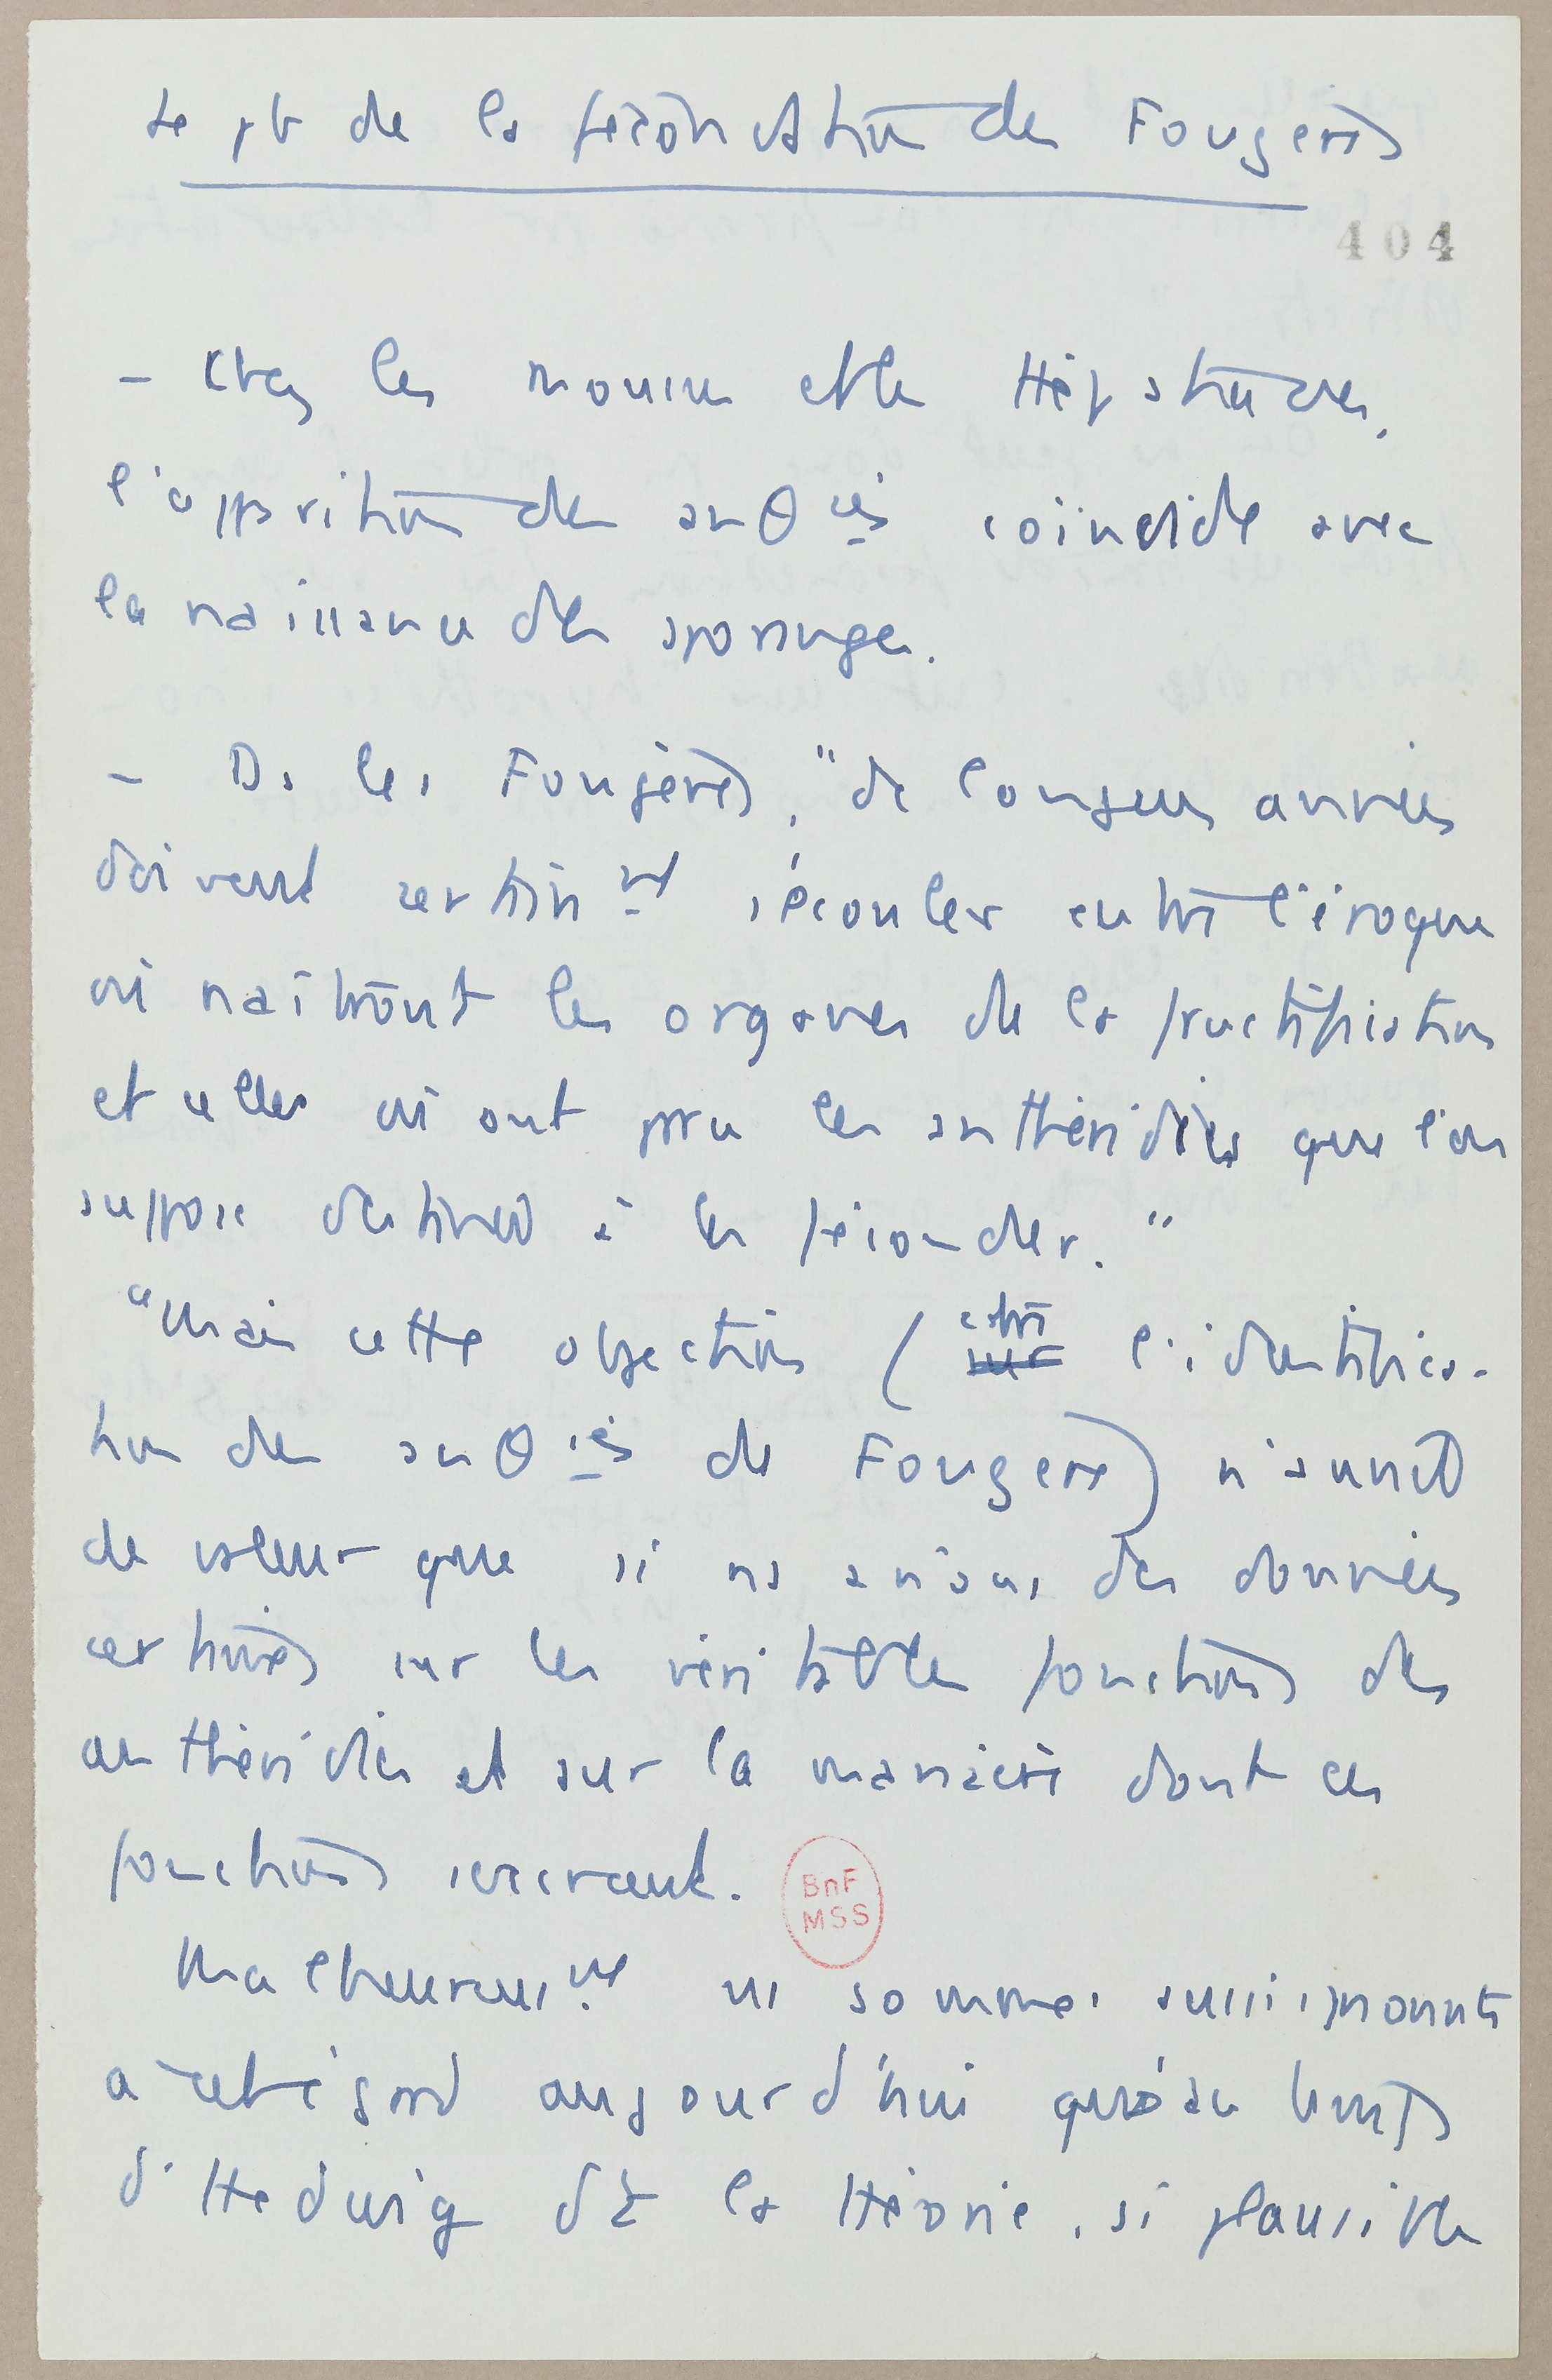 Le pb de la fécondation des Fougères
404
– Chez les mousses et les Hépatiques,
l'apparition des anθies coïncide avec
la naissance des sporanges.
– Ds les Fougères, "de longues années
doivent certainmt s'écouler entre l'époque
où naîtront les organes de la fructification
et celles où ont paru les anthéridies que l'on
suppose destinées à les féconder."
"Mais cette objection (contre l'identifica-
tion des anθies de Fougères) n'aurait
de valeur que si ns avions des données
certaines sur les véritables fonctions des
anthéridies et sur la manière dont ces
fonctions s'exercent.
BnF
MSS
Malheureusmt ns sommes aussi ignorants
à cet égard aujourd'hui qu'au temps
d'Hedwig dt la théorie, si plausible